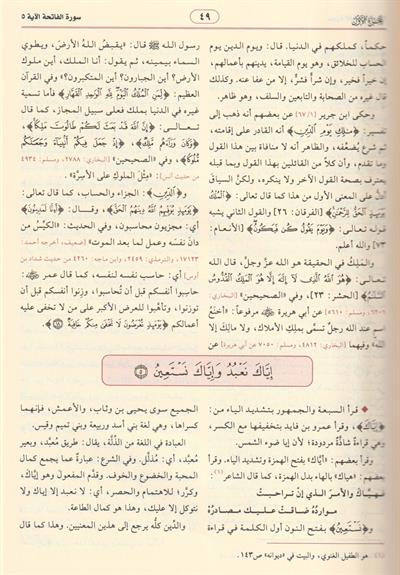 سورة الفاتحة الآية ٥
٤٩
الجزء الأول
حكماً، كملكهم في الدنيا. قال: ويوم الدين يوم
الحساب للخلائق، وهو يوم القيامة، يدينهم بأعمالهم،
إن خيراً فخير، وإن شراً فشر، إلا من عفا عنه. وكذلك
قال غيره من الصحابة والتابعين والسلف، وهو ظاهر.
وحكى ابن جرير [١/٦٧] عن بعضهم أنه ذهب إلى
تفسير: ﴿مَٰلِكِ يَوْمِ ٱلدِّينِ﴾ أنه القادر على إقامته،
ثم شرع يُضعِّفه، والظاهر أنه لا منافاة بين هذا القول
وما تقدم، وأن كلاً من القائلين بهذا القول وبما قبله
يعترف بصحة القول الآخر ولا ينكره، ولكن السياق
أدل على المعنى الأول من هذا كما قال تعالى: ﴿ٱلْمُلْكُ
يَوْمَئِذٍ ٱلْحَقُّ لِلرَّحْمَٰنِ﴾ [الفرقان: ٢٦] والقول الثاني يشبه
قوله: ﴿وَيَوْمَ يَقُولُ كُن فَيَكُونُ﴾ [الأنعام:
٧٣] والله أعلم.
والمَلِكُ في الحقيقة هو الله عزّ وجلّ، قال الله
تعالى: ﴿هُوَ ٱللَّهُ ٱلَّذِى لَآ إِلَٰهَ إِلَّا هُوَ ٱلْمَلِكُ ٱلْقُدُّوسُ
ٱلسَّلَٰمُ﴾ [الحشر: ٢٣]، وفي «الصحيحين»
عن أبي هريرة ﷺ مرفوعاً: «أخنع
اسم عند الله رجلٌ تسمّى بملك الأملاك، ولا مالك إلا
الله» وفيهما [البخاري: ٤٨١٢، ومسلم: ٧٠٥٠ عن أبي هريرة] عن
رسول الله ﷺ قال: «يقبضُ اللهُ الأرضَ، ويطوي
السماء بيمينه، ثم يقول: أنا الملك، أين ملوك
الأرض؟ أين الجبارون؟ أين المتكبرون؟» وفي القرآن
العظيم: ﴿لِّمَنِ ٱلْمُلْكُ ٱلْيَوْمَ لِلَّهِ ٱلْوَٰحِدِ ٱلْقَهَّارِ﴾ فأما تسمية
غيره في الدنيا بملك فعلى سبيل المجاز، كما قال
تعالى: ﴿إِنَّ ٱللَّهَ قَدْ بَعَثَ لَكُمْ طَالُوتَ مَلِكًا﴾،
﴿وَكَانَ وَرَآءَهُم مَّلِكٌ﴾، ﴿إِذْ جَعَلَ فِيكُمْ أَنۢبِيَآءَ وَجَعَلَكُم
مُّلُوكًا﴾، وفي «الصحيحين» [البخاري: ٢٧٨٨، ومسلم: ٤٩٣٤
من حديث أنس]: «مِثلُ الملوك على الأَسِرَّة».
و﴿ٱلدِّينِ﴾: الجزاء والحساب، كما قال تعالى:
﴿يَوْمَئِذٍ يُوَفِّيهِمُ ٱللَّهُ دِينَهُمُ ٱلْحَقَّ﴾، وقال: ﴿أَءِنَّا لَمَدِينُونَ﴾
أي: مجزيون محاسبون، وفي الحديث: «الكيِّسُ من
دانَ نفسَه وعمل لما بعد الموت» [ضعيف، أخرجه أحمد:
١٧١٢٣، والترمذي: ٢٤٥٩، وابن ماجه: ٤٢٦٠ من حديث شداد بن
أوس] أي: حاسب نفسه لنفسه، كما قال عمر ﷺ:
حاسبوا أنفسكم قبل أن تُحاسبوا، وزِنوا أنفسكم قبل أن
توزنوا، وتأهَّبوا للعرض الأكبر على من لا تخفى عليه
أعمالكم ﴿يَوْمَئِذٍ تُعْرَضُونَ لَا تَخْفَىٰ مِنكُمْ خَافِيَةٌ﴾.
إِيَّاكَ نَعْبُدُ وَإِيَّاكَ نَسْتَعِينُ ۝٥
◆ قرأ السبعة والجمهور بتشديد الياء من:
﴿إِيَّاكَ﴾، وقرأ عمرو بن فايد بتخفيفها مع الكسر،
وهي قراءةٌ شاذَّةٌ مردودة؛ لأن إيا ضوء الشمس.
وقرأ بعضهم: «أيّاك» بفتح الهمزة وتشديد الياء. وقرأ
بعضهم: «هياك» بالهاء بدل الهمزة، كما قال الشاعر(١):
فهياك والأمر الذي إن تراحبت
موارده ضاقت عليك مصادره
و﴿نَسْتَعِينُ﴾ بفتح النون أول الكلمة في قراءة
الجميع سوى يحيى بن وثاب، والأعمش، فإنهما
كسراها، وهي لغة بني أسد وربيعة وبني تميم وقيس.
العبادة في اللغة من الذِّلّة، يقال: طريق مُعبَّد، وبعير
مُعبَّد، أي: مُذلَّل. وفي الشرع: عبارة عما يجمع كمال
المحبة والخضوع والخوف. وقدّم المفعول وهو إياك،
وكرّر؛ للاهتمام والحصر، أي: لا نعبد إلا إياك ولا
نتوكل إلا عليك، وهذا هو كمال الطاعة.
والدِّين كلُّه يرجع إلى هذين المعنيين. وهذا كما قال
هو الطفيل الغنوي، والبيت في «ديوانه» ص١٤٣.